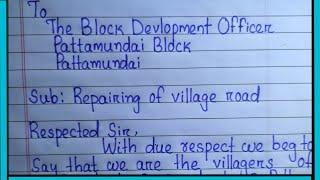 To
The Block Devlopment Officer
Pattamundai Block
Pattamundai
Sub: Repairing of village road
Respected Sir,
With due respect we beg to
Say that we are the villagers of